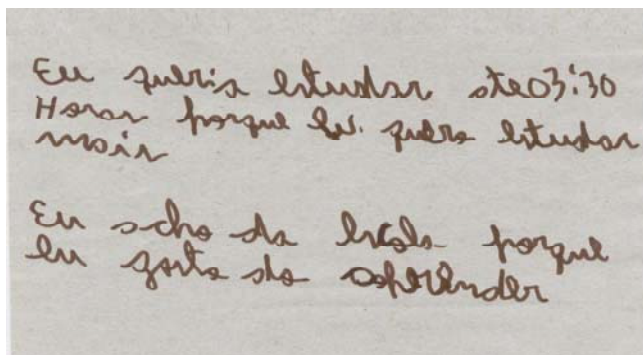 Eu queria estudar ate 03:30
Horas porque Eu quero estudar
mais
Eu acho da escola porque
eu gosto da aprender